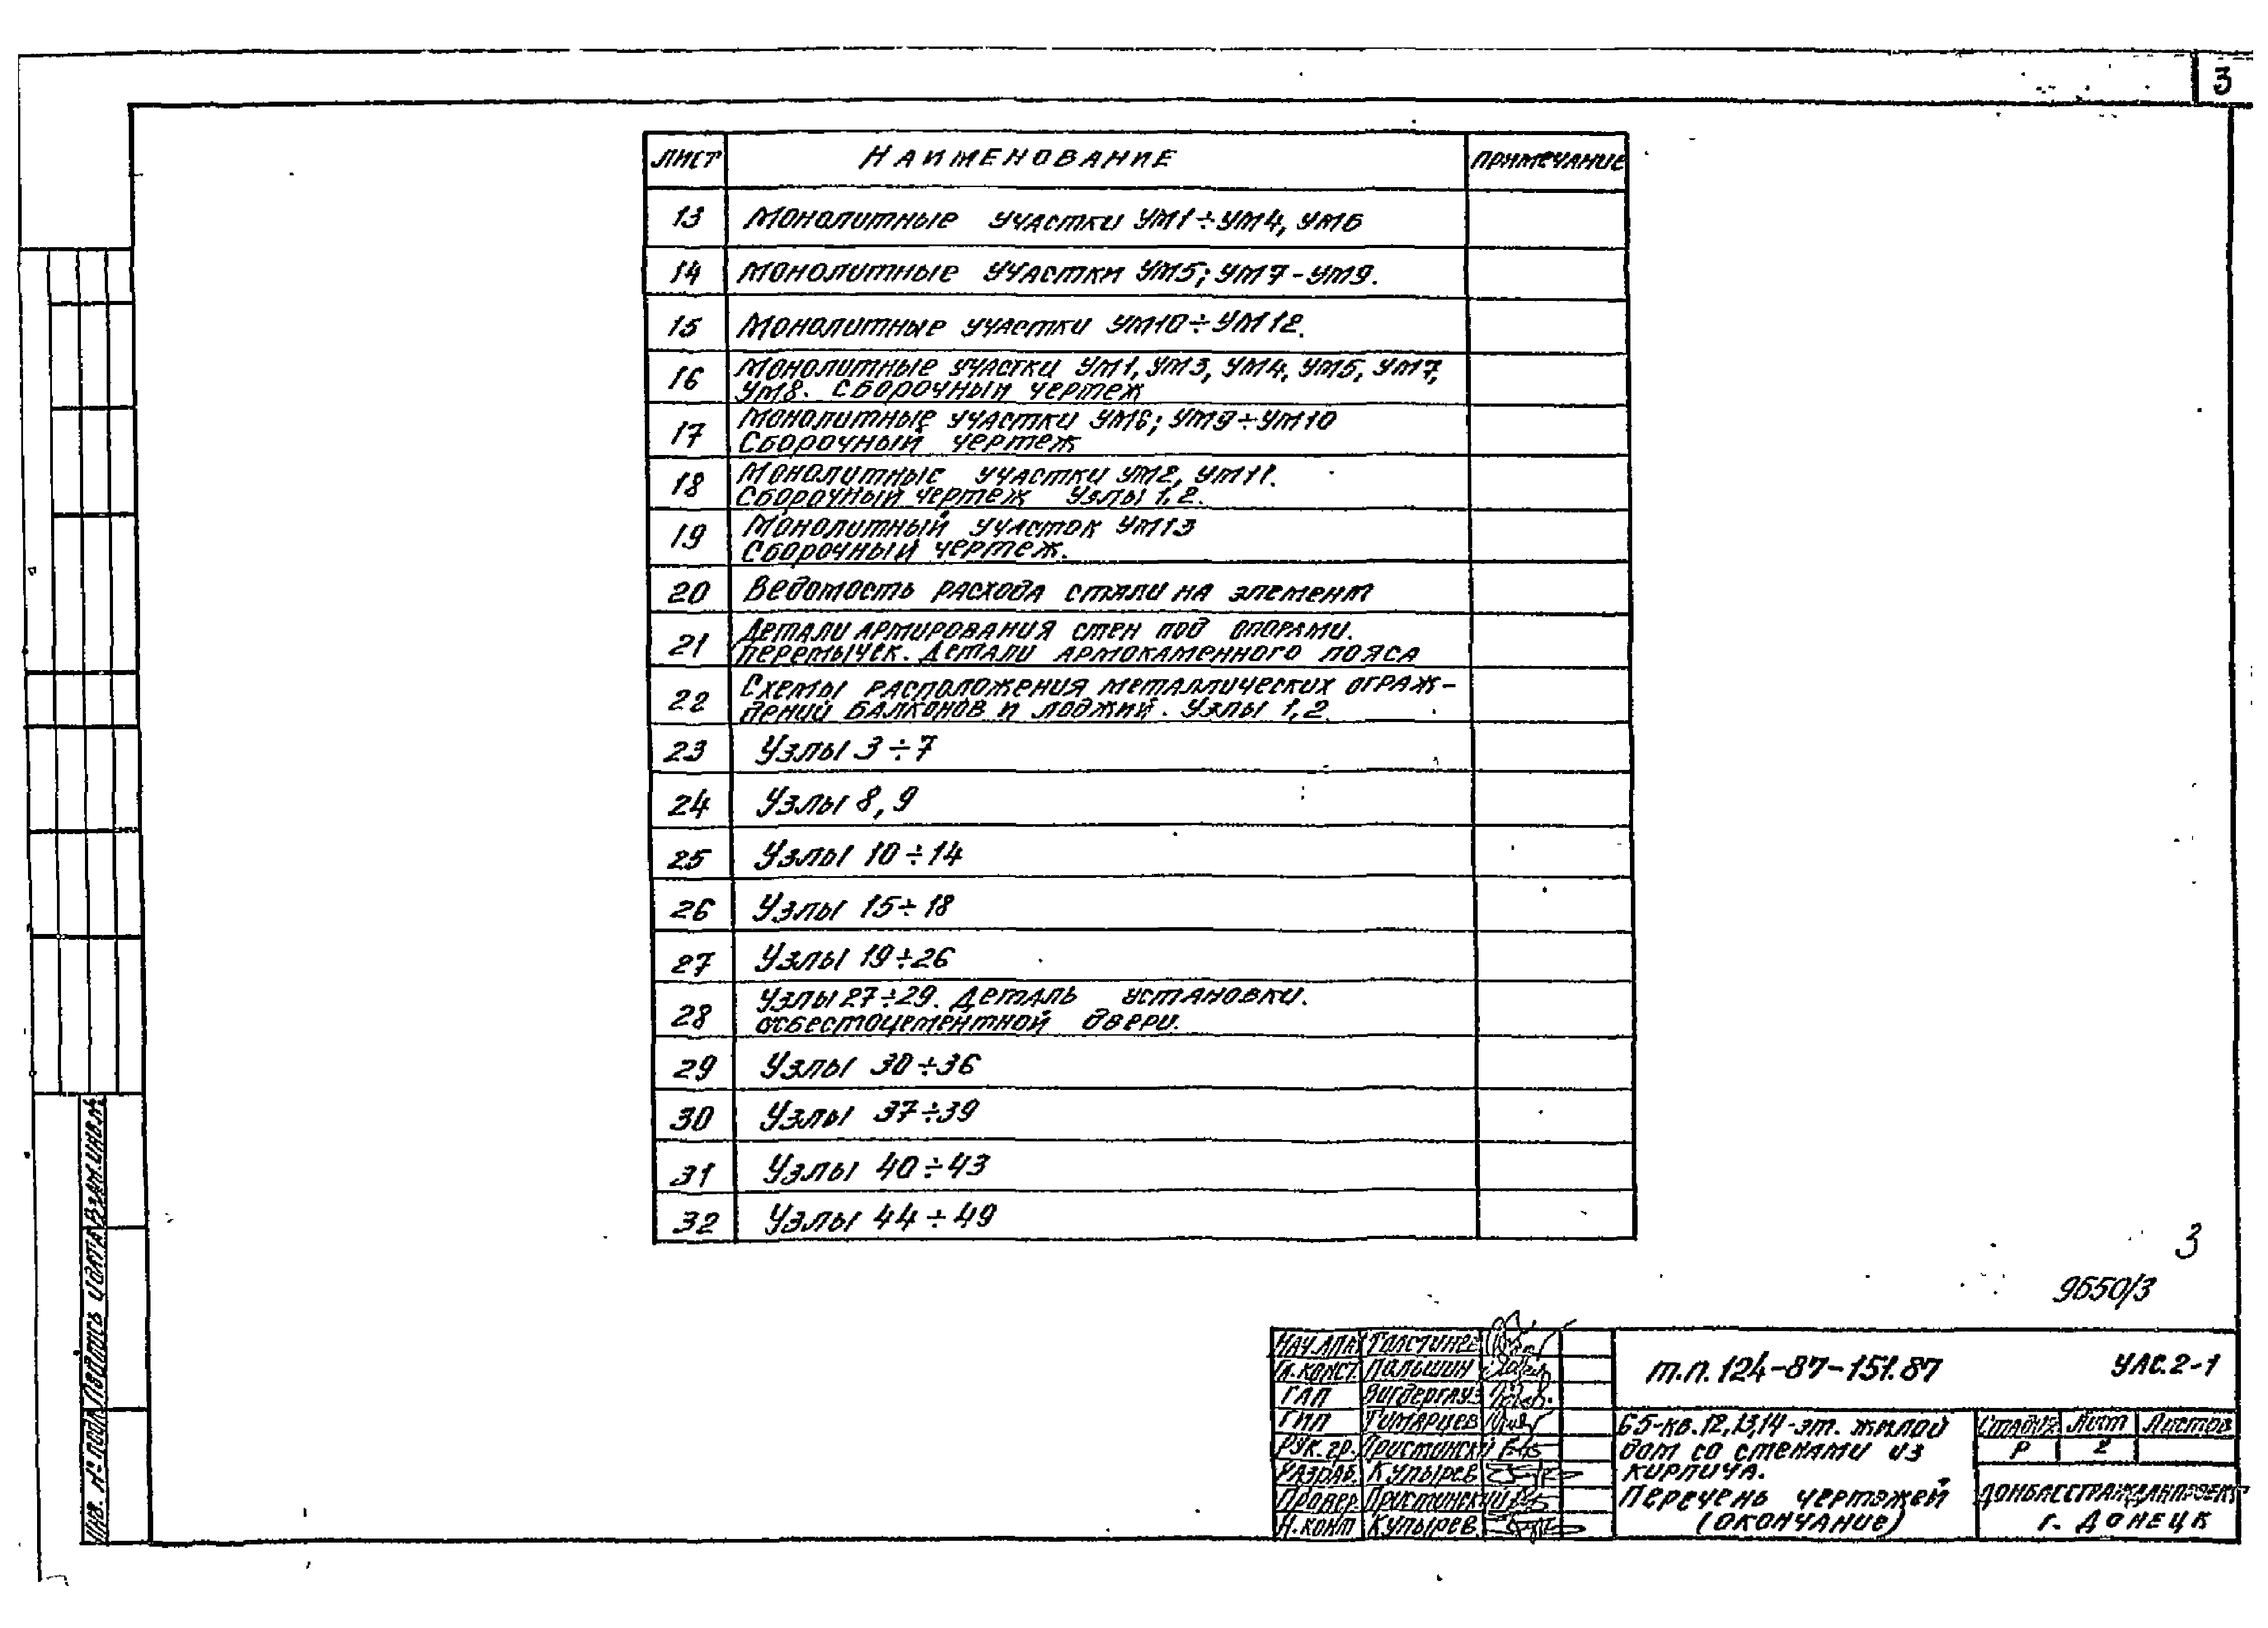 3
Лист Наименование Примечание
13 Монолитные участки Ум1÷Ум4, Ум6
14 Монолитные участки Ум5; Ум7-Ум9.
15 Монолитные участки Ум10÷Ум12.
16 Монолитные участки Ум1, Ум3, Ум4, Ум5, Ум7,
Ум8. Сборочный чертеж
17 Монолитные участки Ум6; Ум9÷Ум10
Сборочный чертеж
18 Монолитные участки Ум2, Ум11.
Сборочный чертеж Узлы 1, 2.
19 Монолитный участок Ум13
Сборочный чертеж.
20 Ведомость расхода стали на элемент
21 Детали армирования стен под опорами.
перемычек. Детали армокаменного пояса
22 Схемы расположения металлических ограж-
дений балконов и лоджий. Узлы 1, 2
23 Узлы 3÷7
24 Узлы 8, 9
25 Узлы 10÷14
26 Узлы 15÷18
27 Узлы 19÷26
28 Узлы 27÷29. Деталь установки.
асбестоцементной двери.
29 Узлы 30÷36
30 Узлы 37÷39
31 Узлы 40÷43
32 Узлы 44÷49
3
9650/3
т.п. 124-87-151.87 УАС.2-1
65-кв. 12,13,14-эт. жилой
дом со стенами из
кирпича.
Перечень чертежей
(окончание)
Стадия Лист Листов
Р 2
Донбассгражданпроект
г. Донецк
Гл. конст. Пальшин
ГАП Вигдергауз
ГИП Гимарцев
Рук. гр. Пристинский
Разраб. Купырев
Провер. Пристинский
Н. конт Купырев
Инв. № подл. Подпись и дата Взам. инв. №